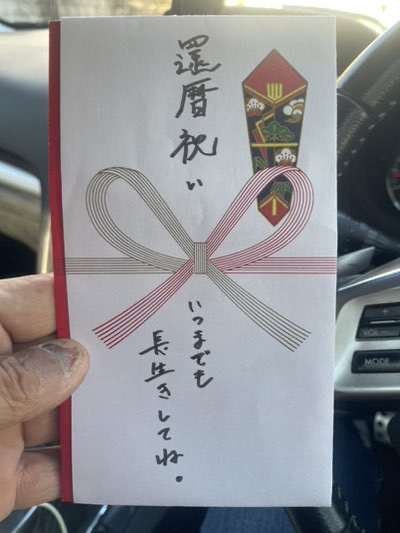 還暦祝い
いつまでも
長生きしてね。
VOL
MODE